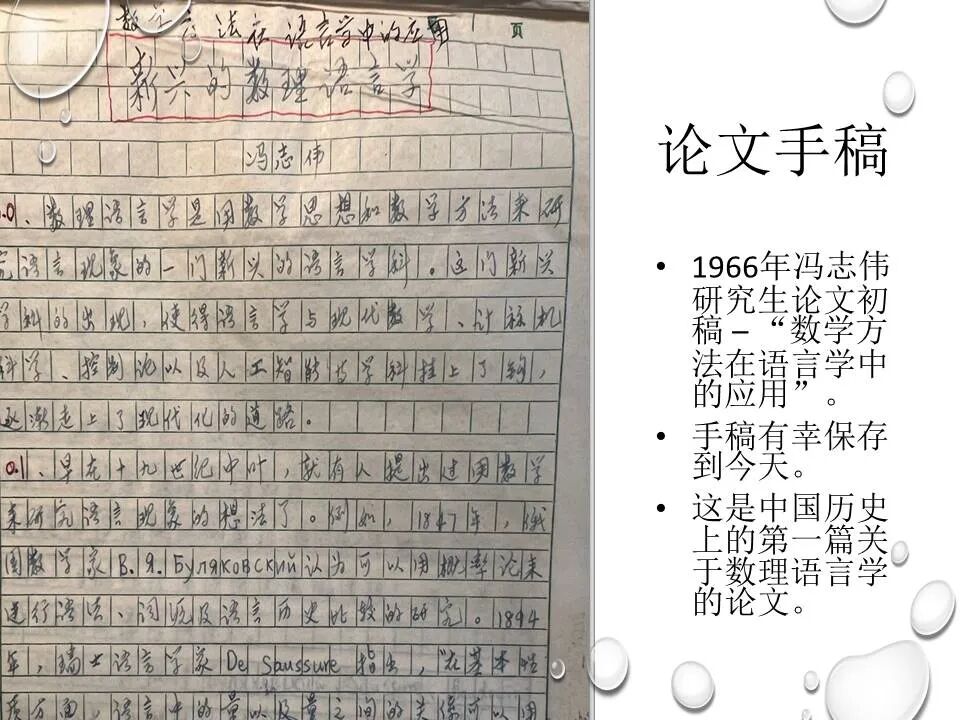 数学方法在语言学中的应用
页
新兴的数理语言学
冯志伟
0.0、数理语言学是用数学思想和数学方法来研
究语言现象的一门新兴的语言学科。这门新兴
学科的出现，使得语言学与现代数学、计算机
科学、控制论以及人工智能等学科挂上了钩，
逐渐走上了现代化的道路。
0.1、早在十九世纪中叶，就有人提出过用数学
来研究语言现象的想法了。例如，1847年，俄
国数学家В.Я.Буляковский认为可以用概率论来
进行语法、词源及语言历史比较的研究。1894
年，瑞士语言学家De Saussure指出，“在基本性
质方面，语言中的量以及量之间的关系可以用
论文手稿
• 1966年冯志伟
研究生论文初
稿 – “数学方
法在语言学中
的应用”。
• 手稿有幸保存
到今天。
• 这是中国历史
上的第一篇关
于数理语言学
的论文。